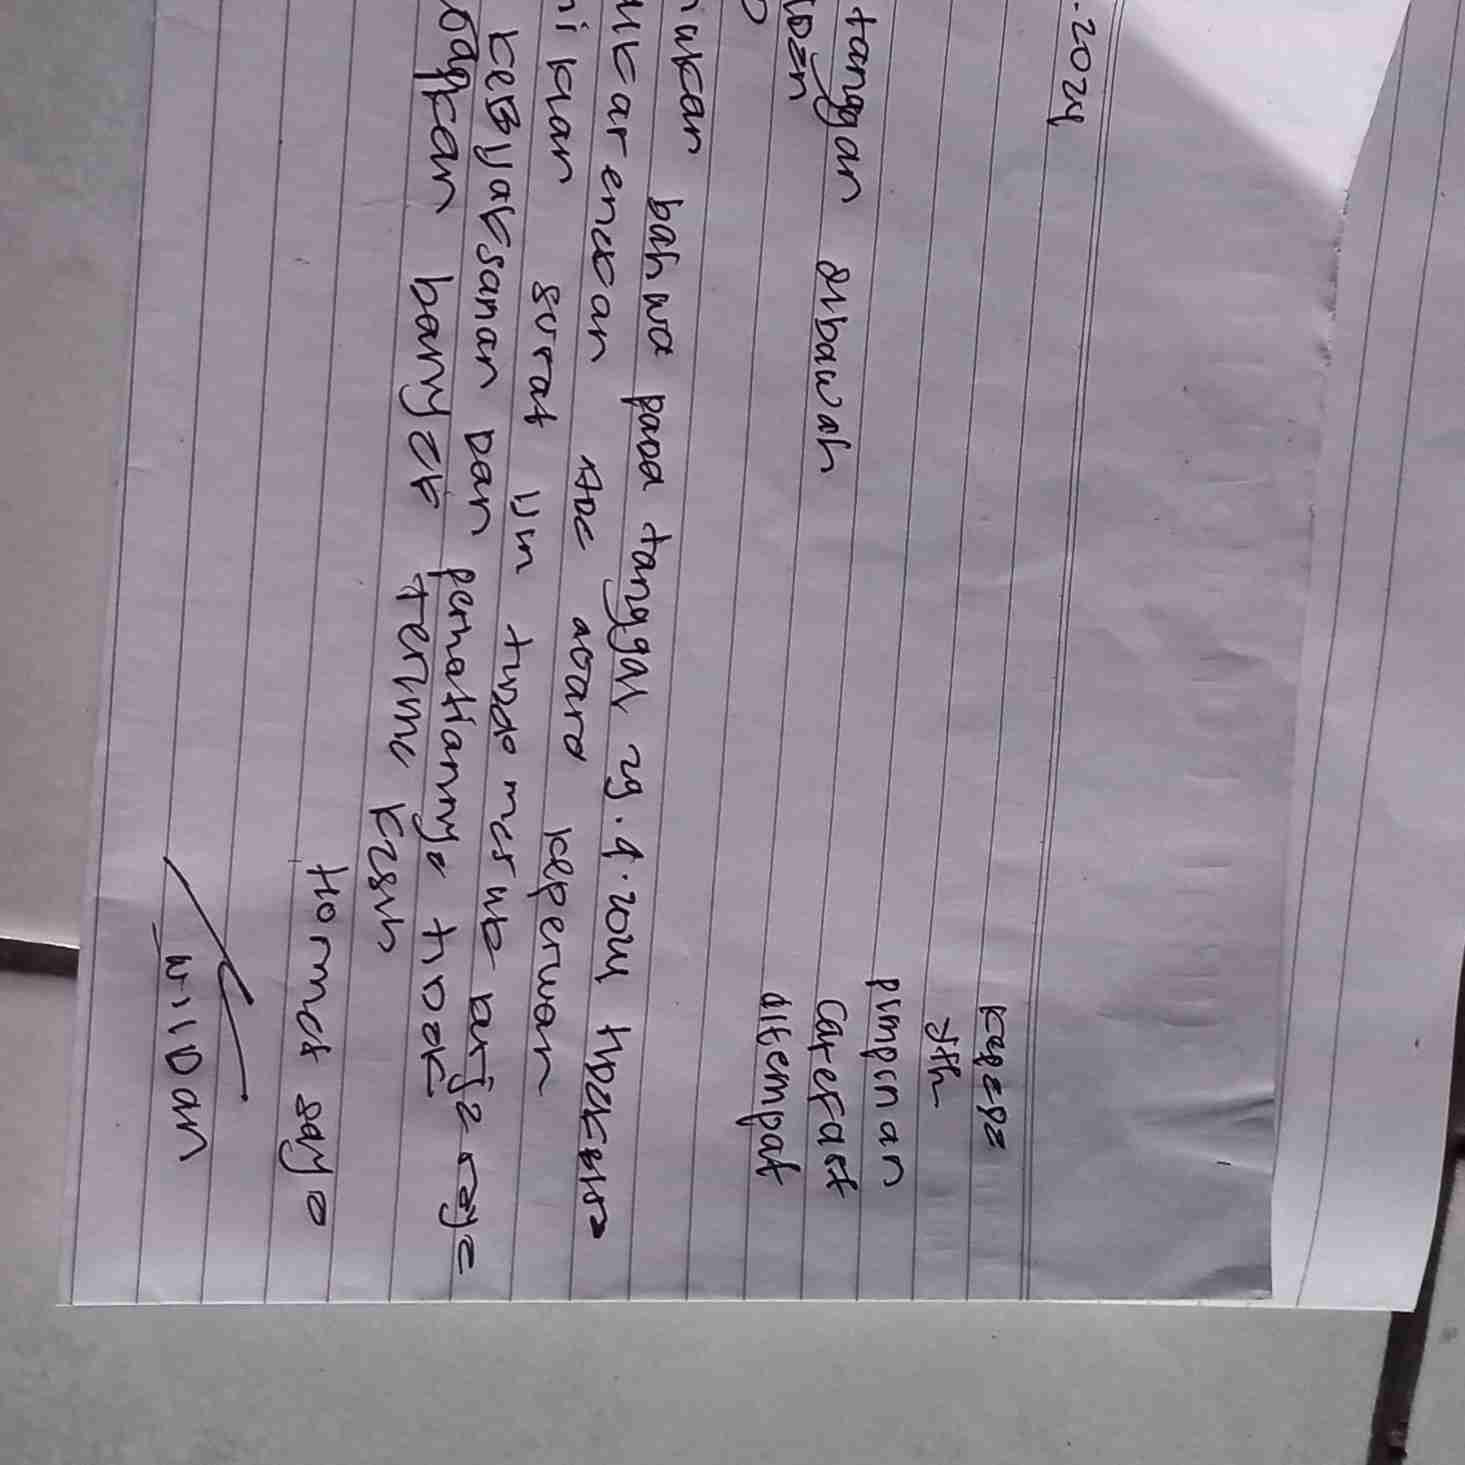 .2024
Kepada
Yth
pimpinan
Carefast
ditempat
tanggan dibawah
bahwa pada tanggal 29.4.2024 tidak
karenakan ada acara keperluan
surat ijin tidak masuk kerja saya
kebijaksanan dan perhatiannya tidak
banyak terima kasih
Hormat saya
wildan